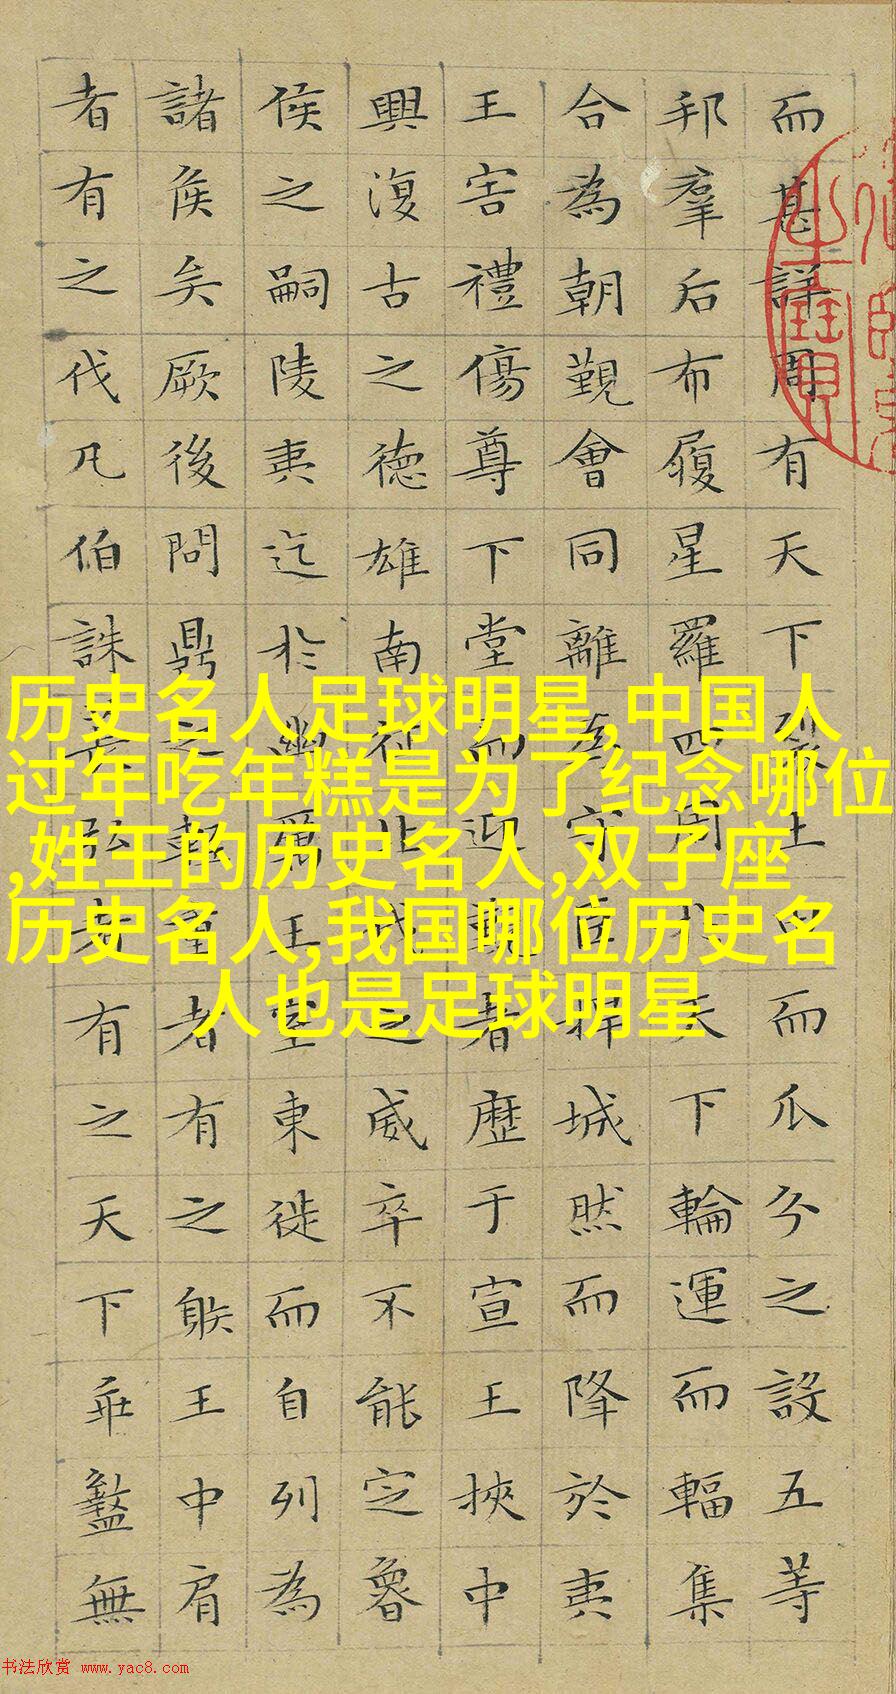 而甚詳周有天下裂土田而瓜分之設五等
邦羣后布履星羅四周於天下輪運而輻集
合為朝覲會同離為守臣捍城然而降於夷
王害禮傷尊下堂而迎覲者歷于宣王挾中
興復古之德雄南征北伐之威卒不能定魯
侯之嗣陵夷迄於幽厲王室東徙而自列為
諸侯矣厥後問鼎之輕重者有之躲王中肩
者有之伐凡伯誅萇弘者有之天下乖盭無
历史名人足球明星,中国人
过年吃年糕是为了纪念哪位
,姓王的历史名人,双子座
历史名人,我国哪位历史名
人也是足球明星
书法欣赏 www.yac8.com